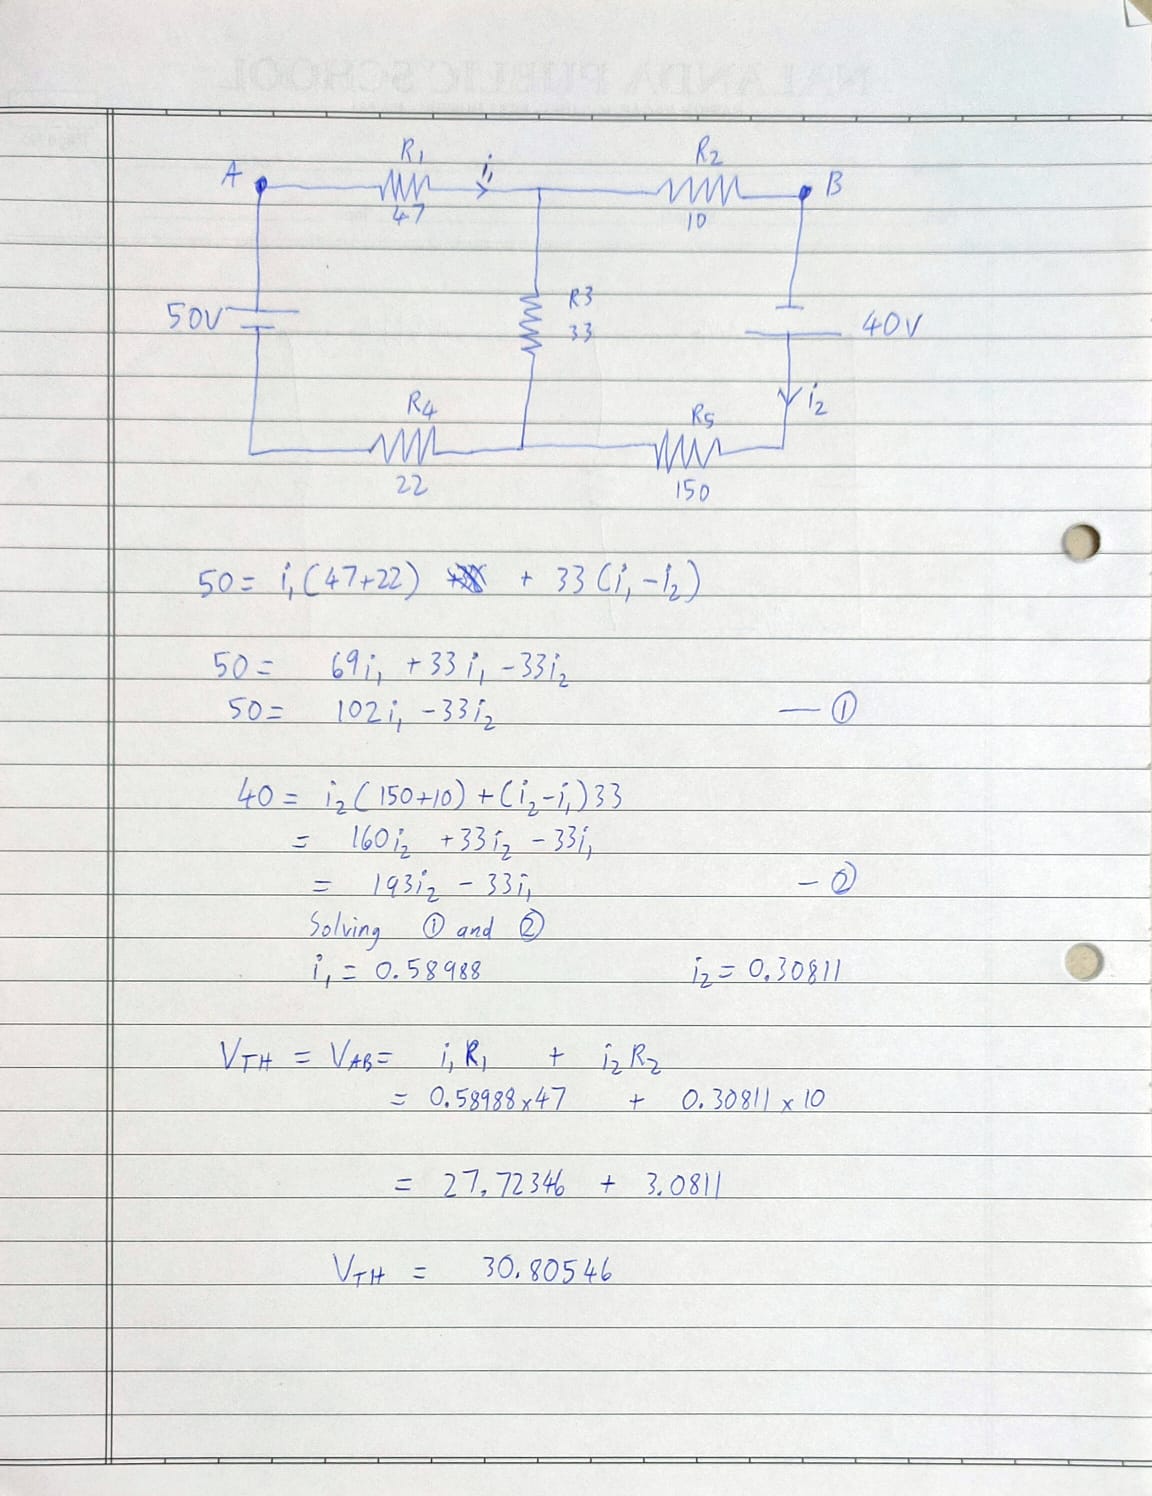 NALANDA PUBLIC SCHOOL
R₁ i₁ R₂
A B
47 10
50V R3 40V
33
R₄ i₂
R₅
22 150
50 = i₁(47+22) + 33(i₁-i₂)
50 = 69i₁ + 33i₁ - 33i₂
50 = 102i₁ - 33i₂ — ①
40 = i₂(150+10) + (i₂-i₁)33
= 160i₂ + 33i₂ - 33i₁
= 193i₂ - 33i₁ - ②
Solving ① and ②
i₁ = 0.58988 i₂ = 0.30811
V_TH = V_AB = i₁R₁ + i₂R₂
= 0.58988×47 + 0.30811×10
= 27.72346 + 3.0811
V_TH = 30.80546